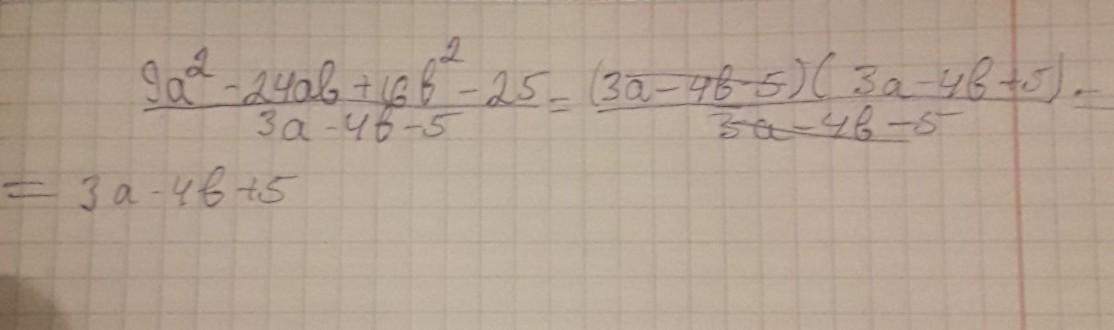 9a² - 24ab + 16b² - 25 = (3a - 4b - 5)(3a - 4b + 5) =
3a - 4b - 5 3a - 4b - 5
= 3a - 4b + 5